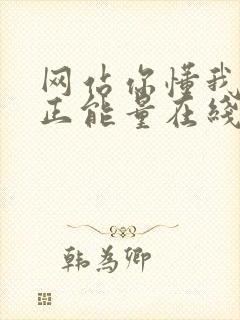 网站你懂我
正能量在线
韩为卿